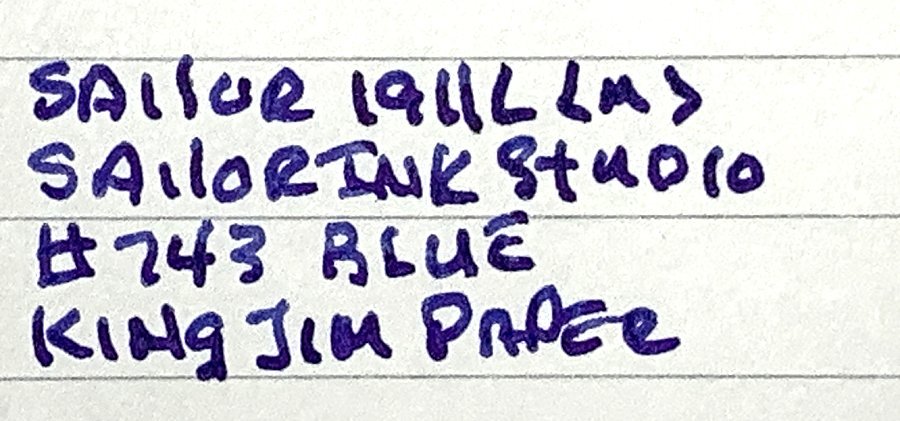 SAILOR 1911L <M>
SAILOR INK STUDIO
#743 BLUE
KING JIM PAPER